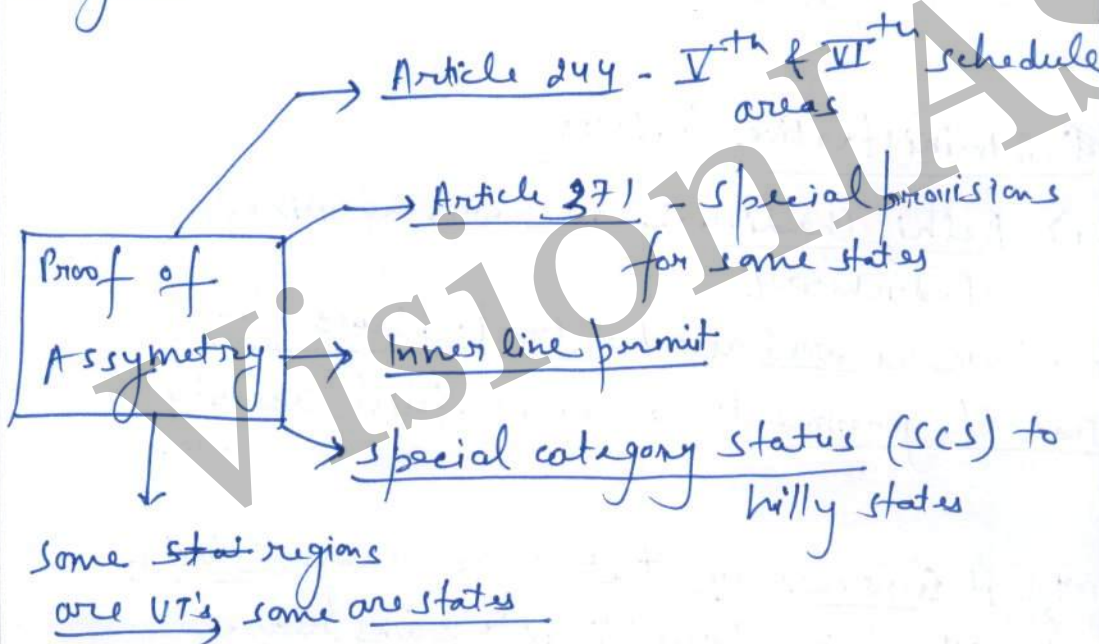 Article 244 - Vth & VIth schedule
areas
Article 371 - special provisions
for some states
Proof of
Assymetry
Inner line permit
special category status (SCS) to
hilly states
some stat regions
are UT's, some are states
VisionIAS